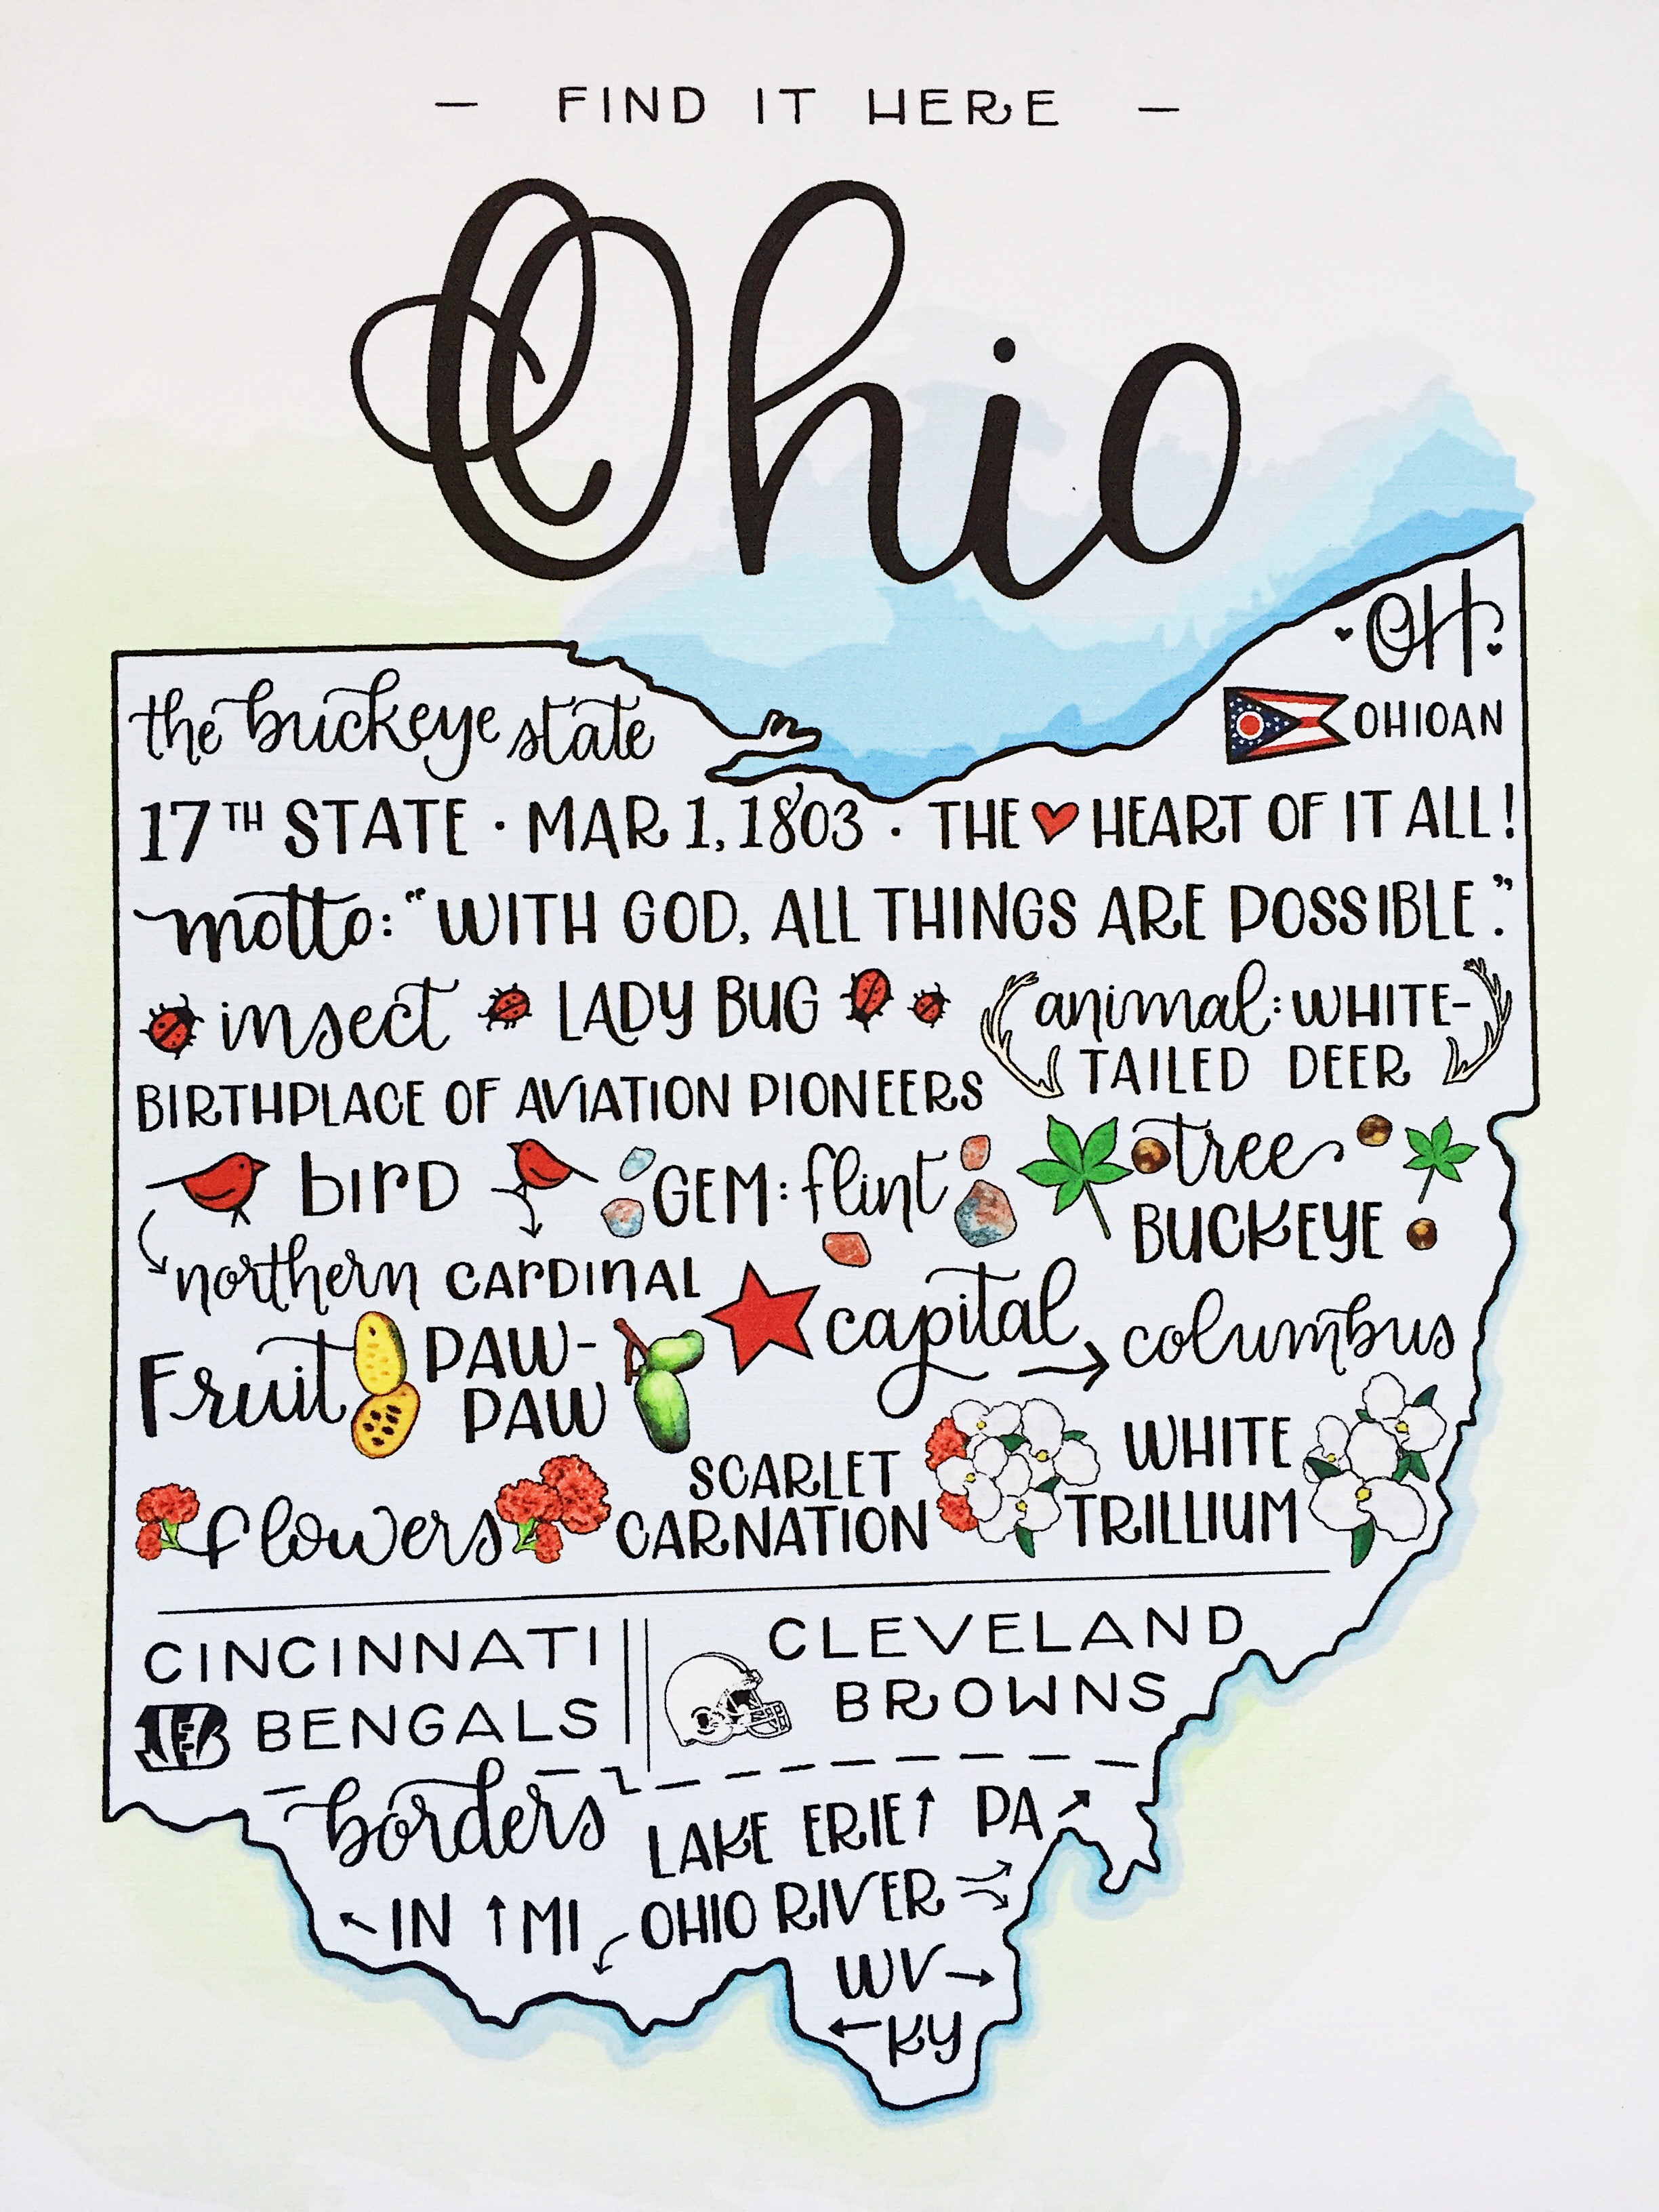 — FIND IT HERE —
Ohio
OH
OHIOAN
the buckeye state
17TH STATE · MAR 1, 1803 · THE HEART OF IT ALL!
motto: "WITH GOD, ALL THINGS ARE POSSIBLE."
insect LADY BUG
animal: WHITE-
TAILED DEER
BIRTHPLACE OF AVIATION PIONEERS
bird
northern CARDINAL
GEM: flint
tree
BUCKEYE
Fruit PAW-
PAW
capital → columbus
flowers
SCARLET
CARNATION
WHITE
TRILLIUM
CINCINNATI
B BENGALS
CLEVELAND
BROWNS
borders
LAKE ERIE ↑ PA ↗
↖ IN ↑ MI OHIO RIVER
WV →
← KY